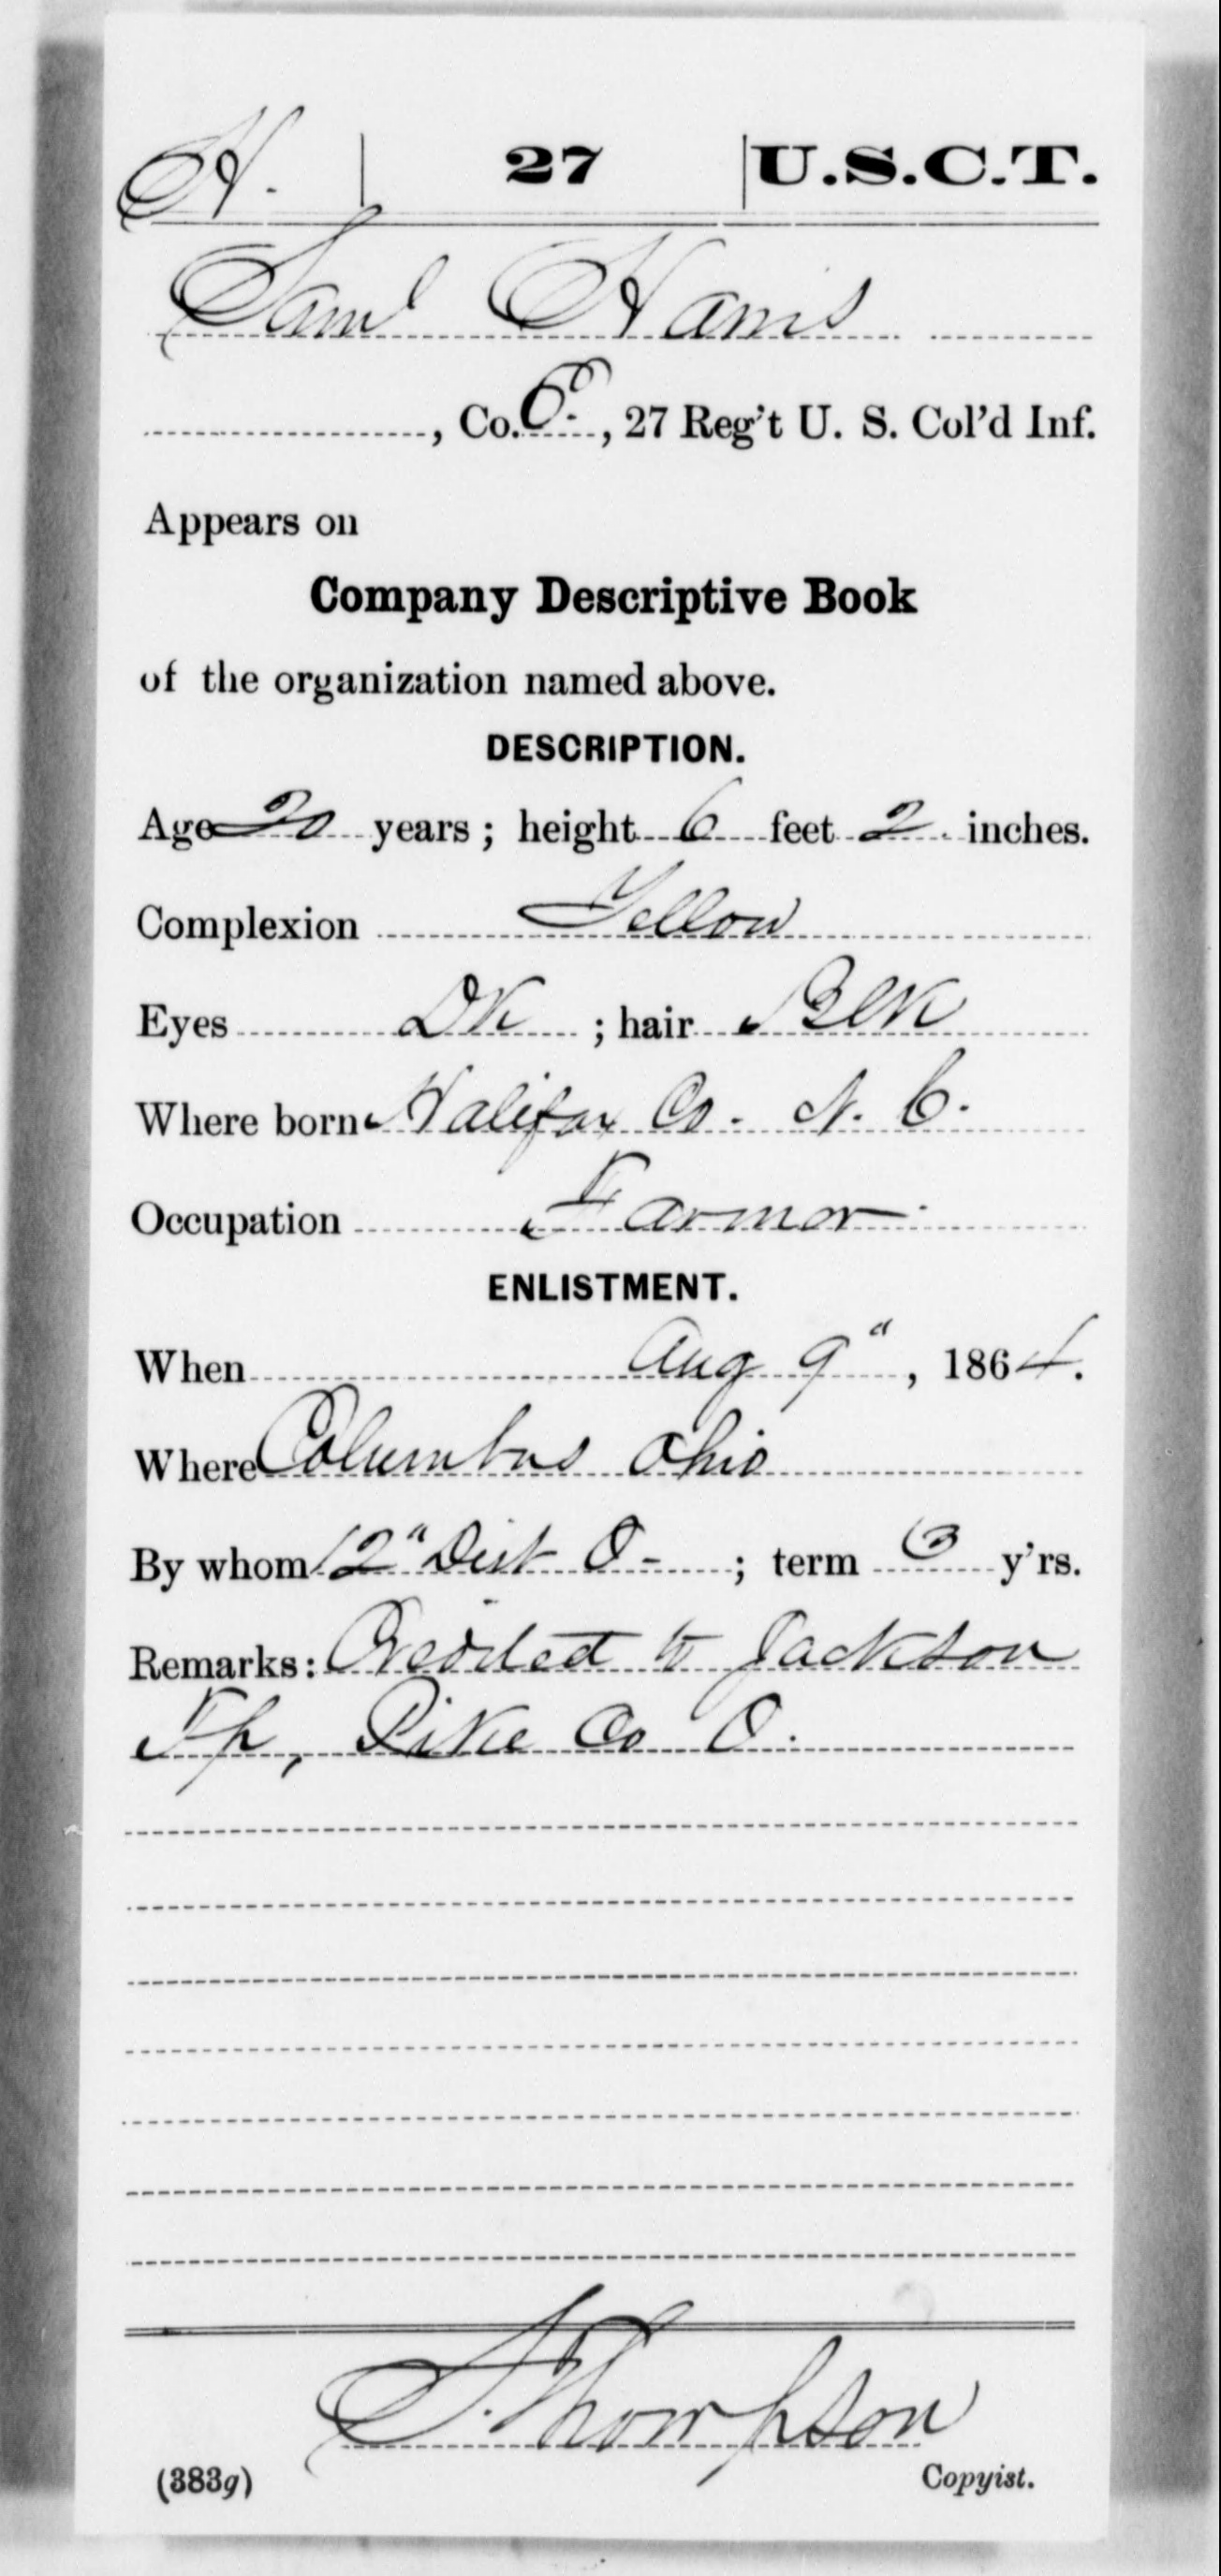 H. | 27 | U.S.C.T.
Saml Harris
, Co. E, 27 Reg't U. S. Col'd Inf.
Appears on
Company Descriptive Book
of the organization named above.
DESCRIPTION.
Age 20 years; height 6 feet 2 inches.
Complexion Yellow
Eyes Dk ; hair Blk
Where born Halifax Co. N. C.
Occupation Farmer
ENLISTMENT.
When Aug 9", 1864.
Where Columbus Ohio
By whom 12" Dist O- ; term 3 y'rs.
Remarks: Credited to Jackson
Tp, Pike Co O.
Thompson
(383g) Copyist.